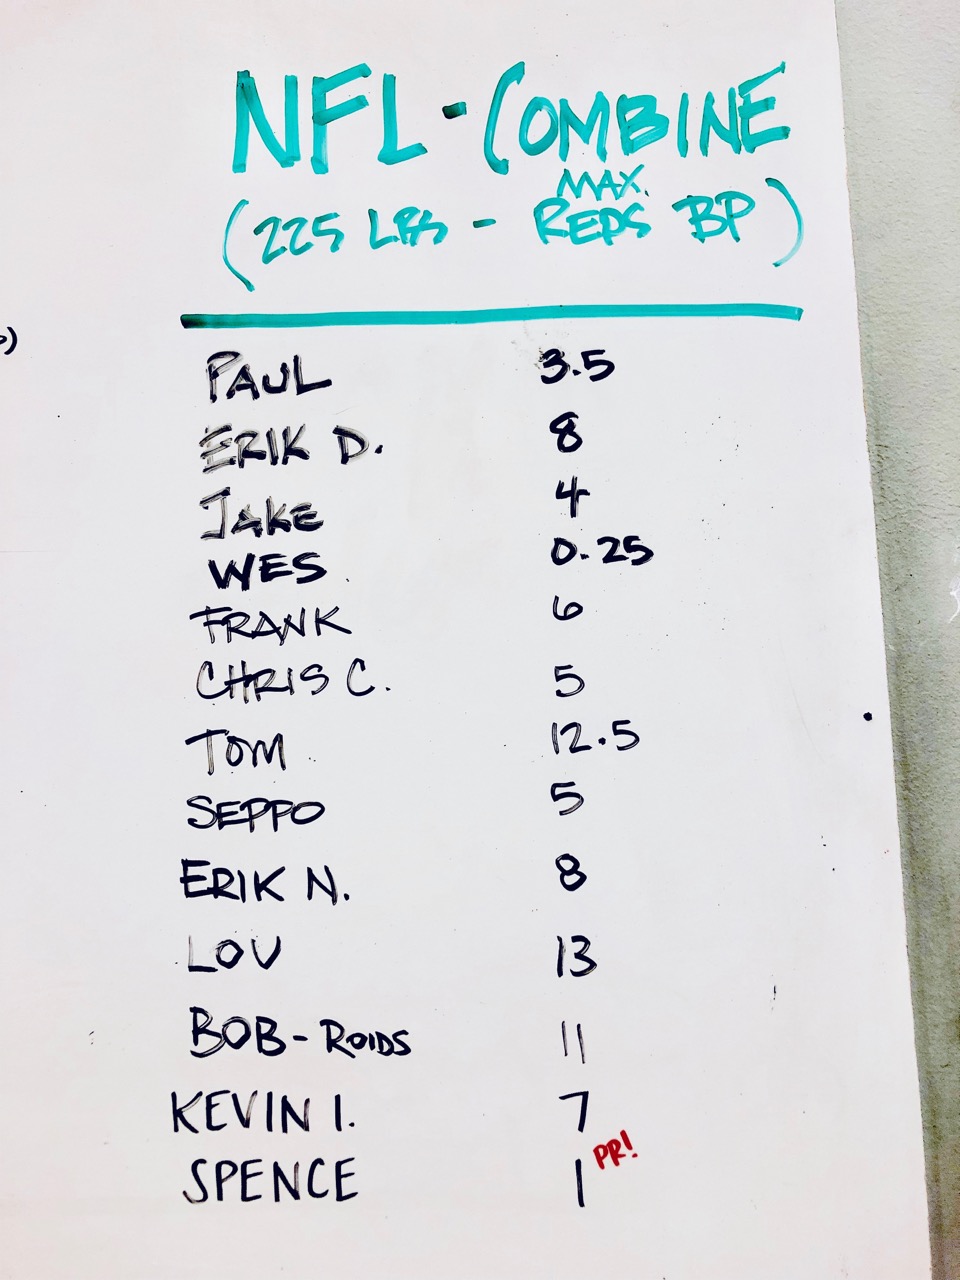 NFL - COMBINE
(225 LBS - MAX. REPS BP)
PAUL 3.5
ERIK D. 8
JAKE 4
WES 0.25
FRANK 6
CHRIS C. 5
TOM 12.5
SEPPO 5
ERIK N. 8
LOU 13
BOB - ROIDS 11
KEVIN I. 7
SPENCE 1 PR!